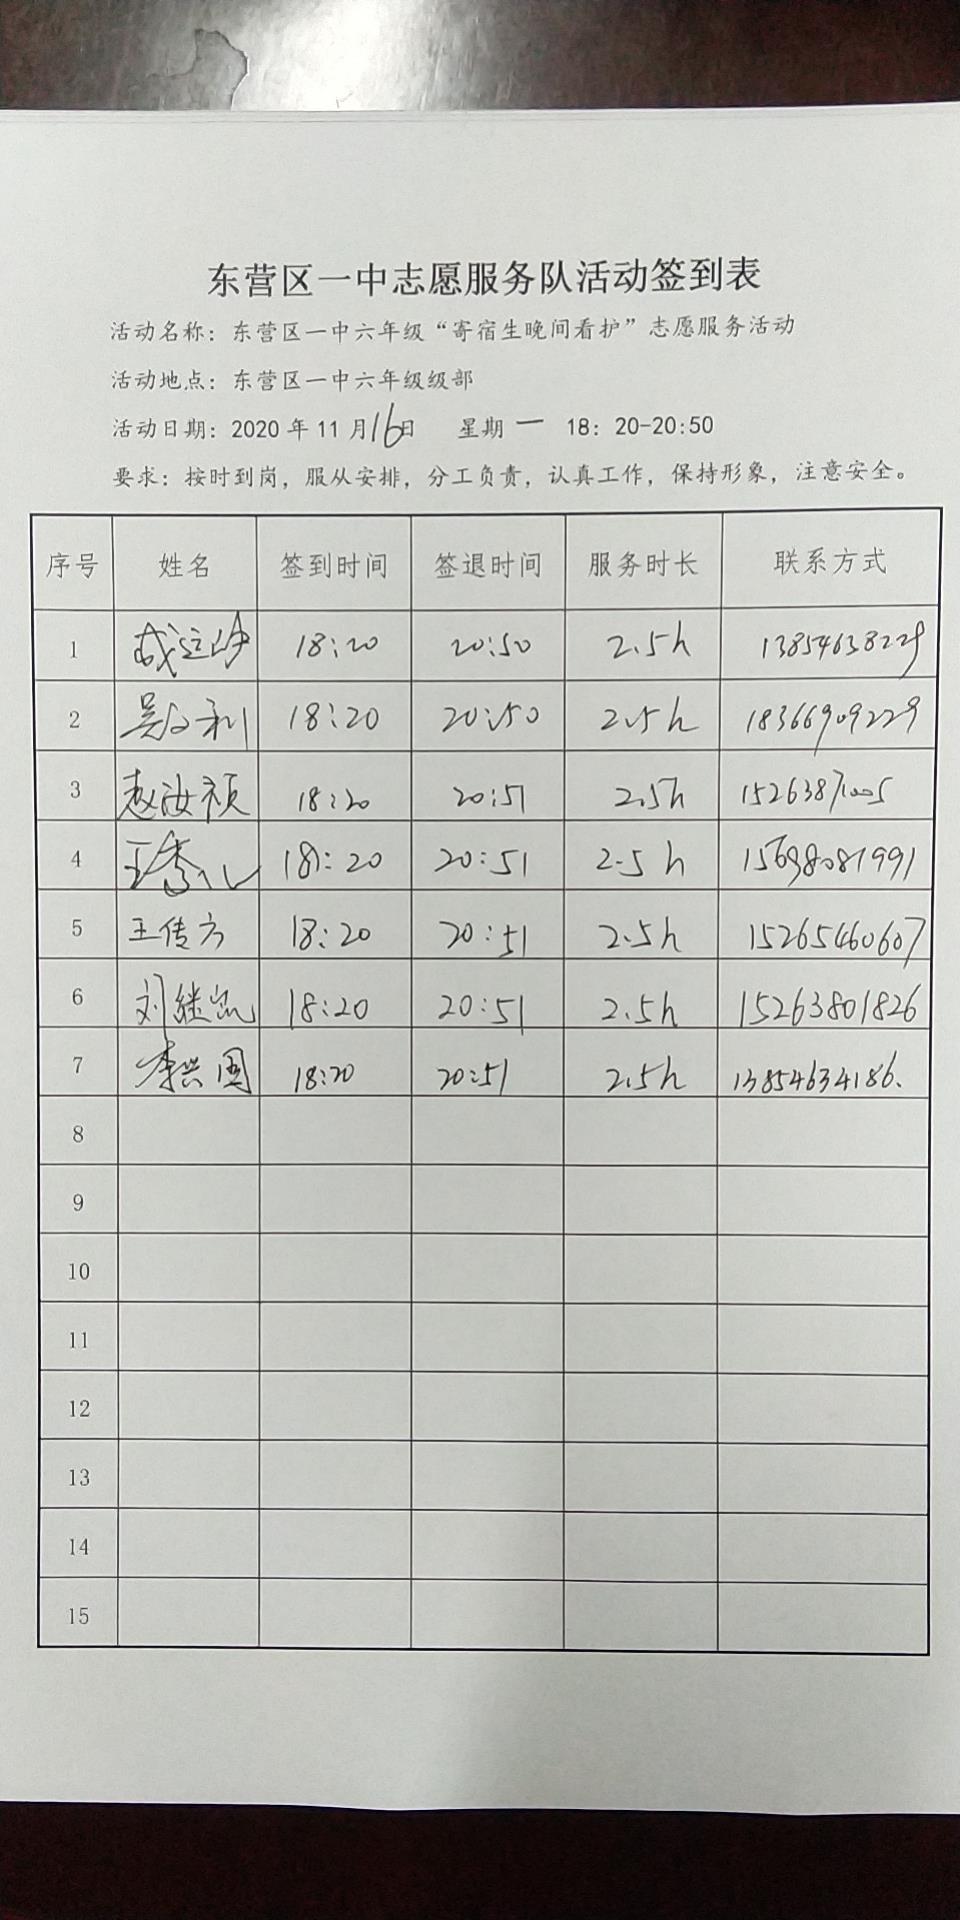 东营区一中志愿服务队活动签到表
活动名称：东营区一中六年级“寄宿生晚间看护”志愿服务活动
活动地点：东营区一中六年级级部
活动日期：2020 年 11 月16日 星期一 18：20-20:50
要求：按时到岗，服从安排，分工负责，认真工作，保持形象，注意安全。
序号 姓名 签到时间 签退时间 服务时长 联系方式
1 18:20 20:50 2.5h 13854638229
2 18:20 20:50 2.5h 18366909229
3 赵汝祯 18:20 20:51 2.5h 15263871005
4 18:20 20:51 2.5h 15698081991
5 王传方 18:20 20:51 2.5h 15265460607
6 刘继凯 18:20 20:51 2.5h 15263801826
7 李兴国 18:20 20:51 2.5h 13854634186.
8
9
10
11
12
13
14
15